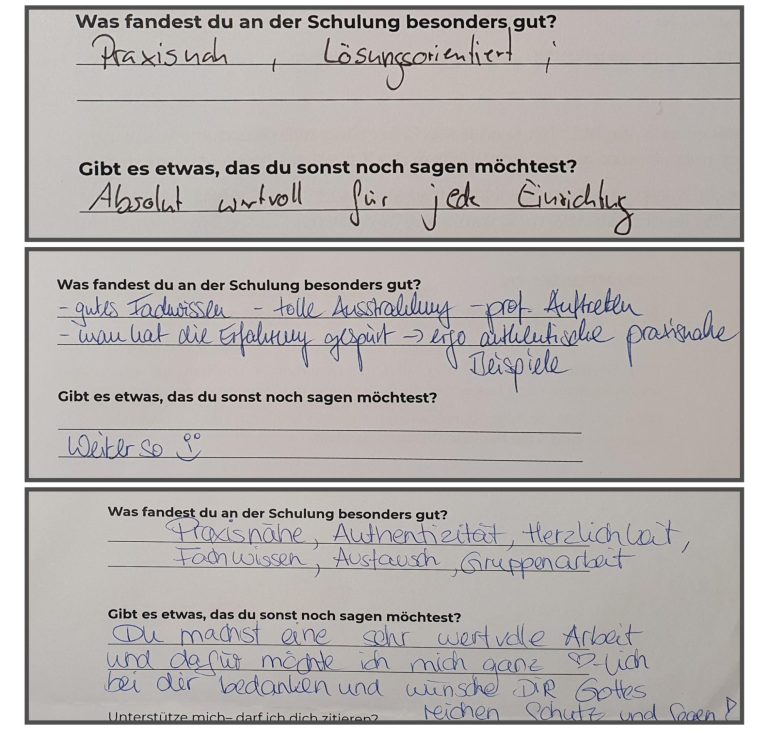 Was fandest du an der Schulung besonders gut?
Praxisnah, Lösungsorientiert;
Gibt es etwas, das du sonst noch sagen möchtest?
Absolut wertvoll für jede Einrichtung
Was fandest du an der Schulung besonders gut?
- gutes Fachwissen - tolle Ausstrahlung - prof. Auftreten
- man hat die Erfahrung gespürt → ergo authentische praxisnahe
Beispiele
Gibt es etwas, das du sonst noch sagen möchtest?
Weiter so
Was fandest du an der Schulung besonders gut?
Praxisnähe, Authentizität, Herzlichkeit,
Fachwissen, Austausch, Gruppenarbeit
Gibt es etwas, das du sonst noch sagen möchtest?
Du machst eine sehr wertvolle Arbeit
und dafür möchte ich mich ganz ♡-lich
bei dir bedanken und wünsche DIR Gottes
reichen Schutz und Segen!
Unterstütze mich– darf ich dich zitieren?